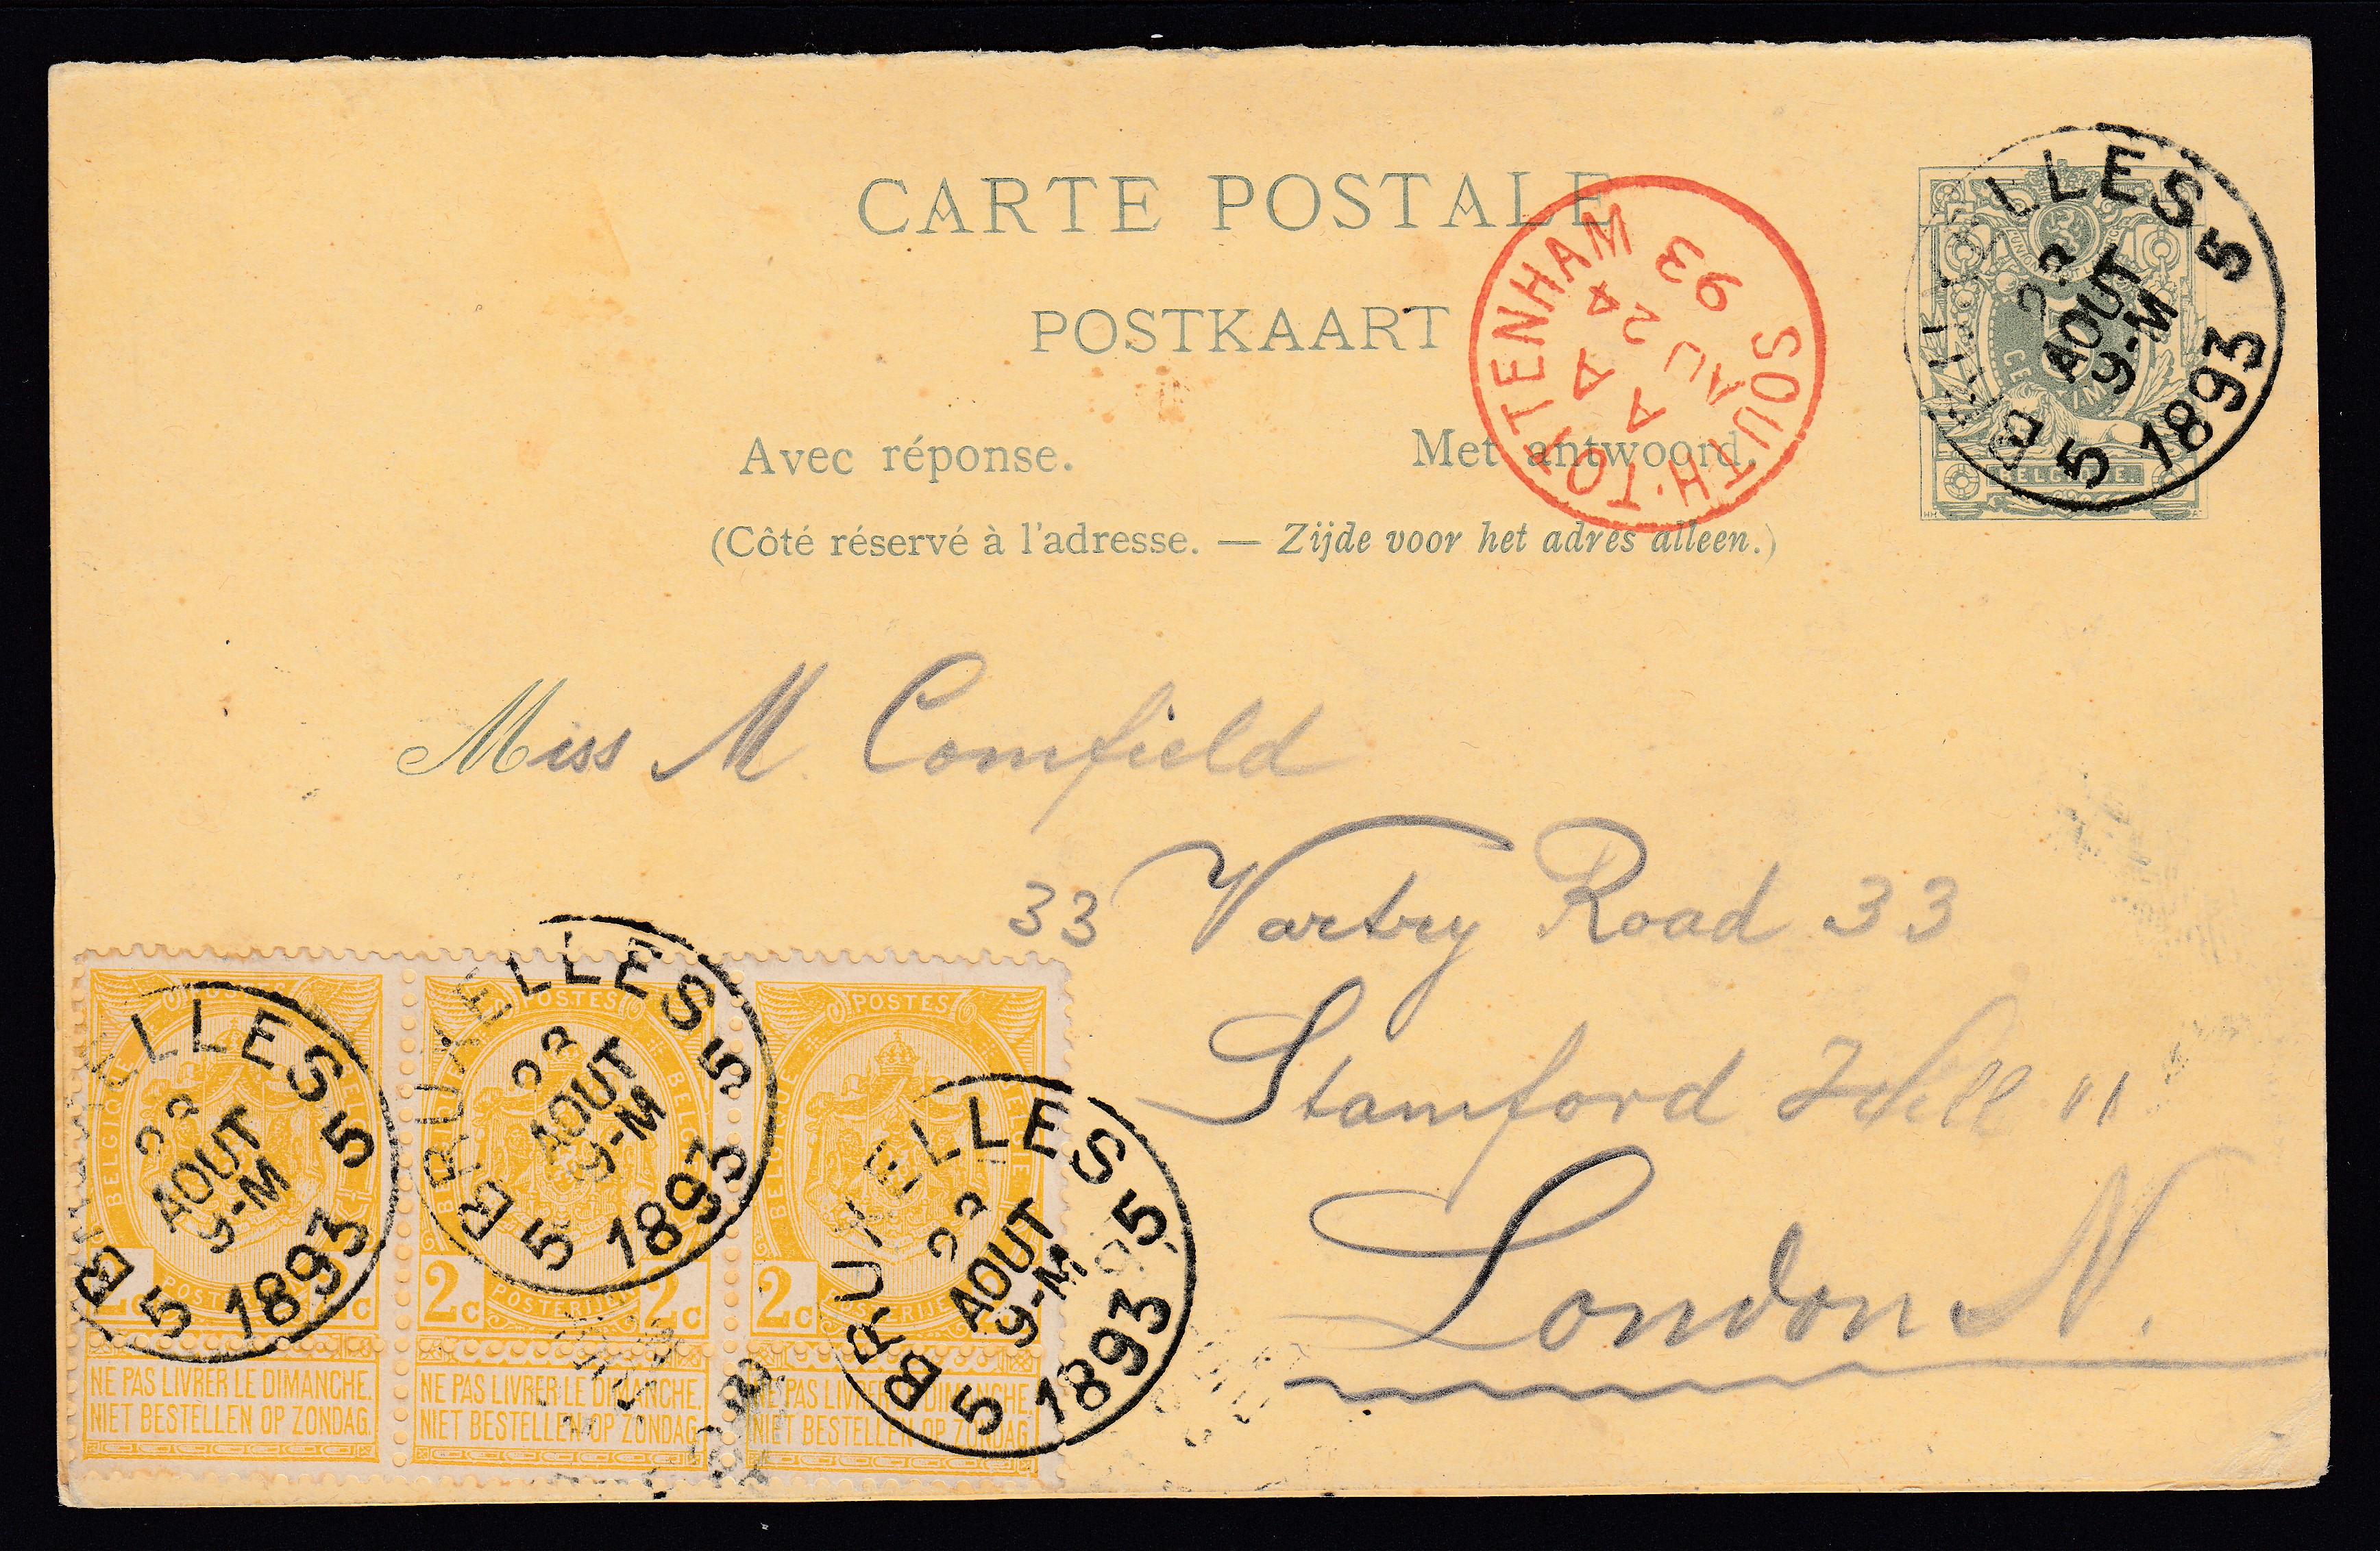 CARTE POSTALE
POSTKAART
Avec réponse. Met antwoord.
(Côté réservé à l'adresse. — Zijde voor het adres alleen.)
SOUTH·TOTTENHAM
A A
AU 24
93
BRUXELLES 5
23
AOUT
9-M
5 1893
CENTIMES
BELGIQUE.
Miss M. Cornfield
33 Vartry Road 33
Stamford Hill "
London N.
BRUXELLES 5
23
AOUT
9-M
5 1893
BELGIQUE BELGIË
2c POSTERIJEN 2c
NE PAS LIVRER LE DIMANCHE.
NIET BESTELLEN OP ZONDAG.
POSTES
BRUXELLES 5
23
AOUT
9-M
5 1893
2c POSTERIJEN 2c
NE PAS LIVRER LE DIMANCHE.
NIET BESTELLEN OP ZONDAG.
POSTES
BRUXELLES 5
23
AOUT
9-M
5 1893
2c POSTERIJEN
NE PAS LIVRER LE DIMANCHE.
NIET BESTELLEN OP ZONDAG